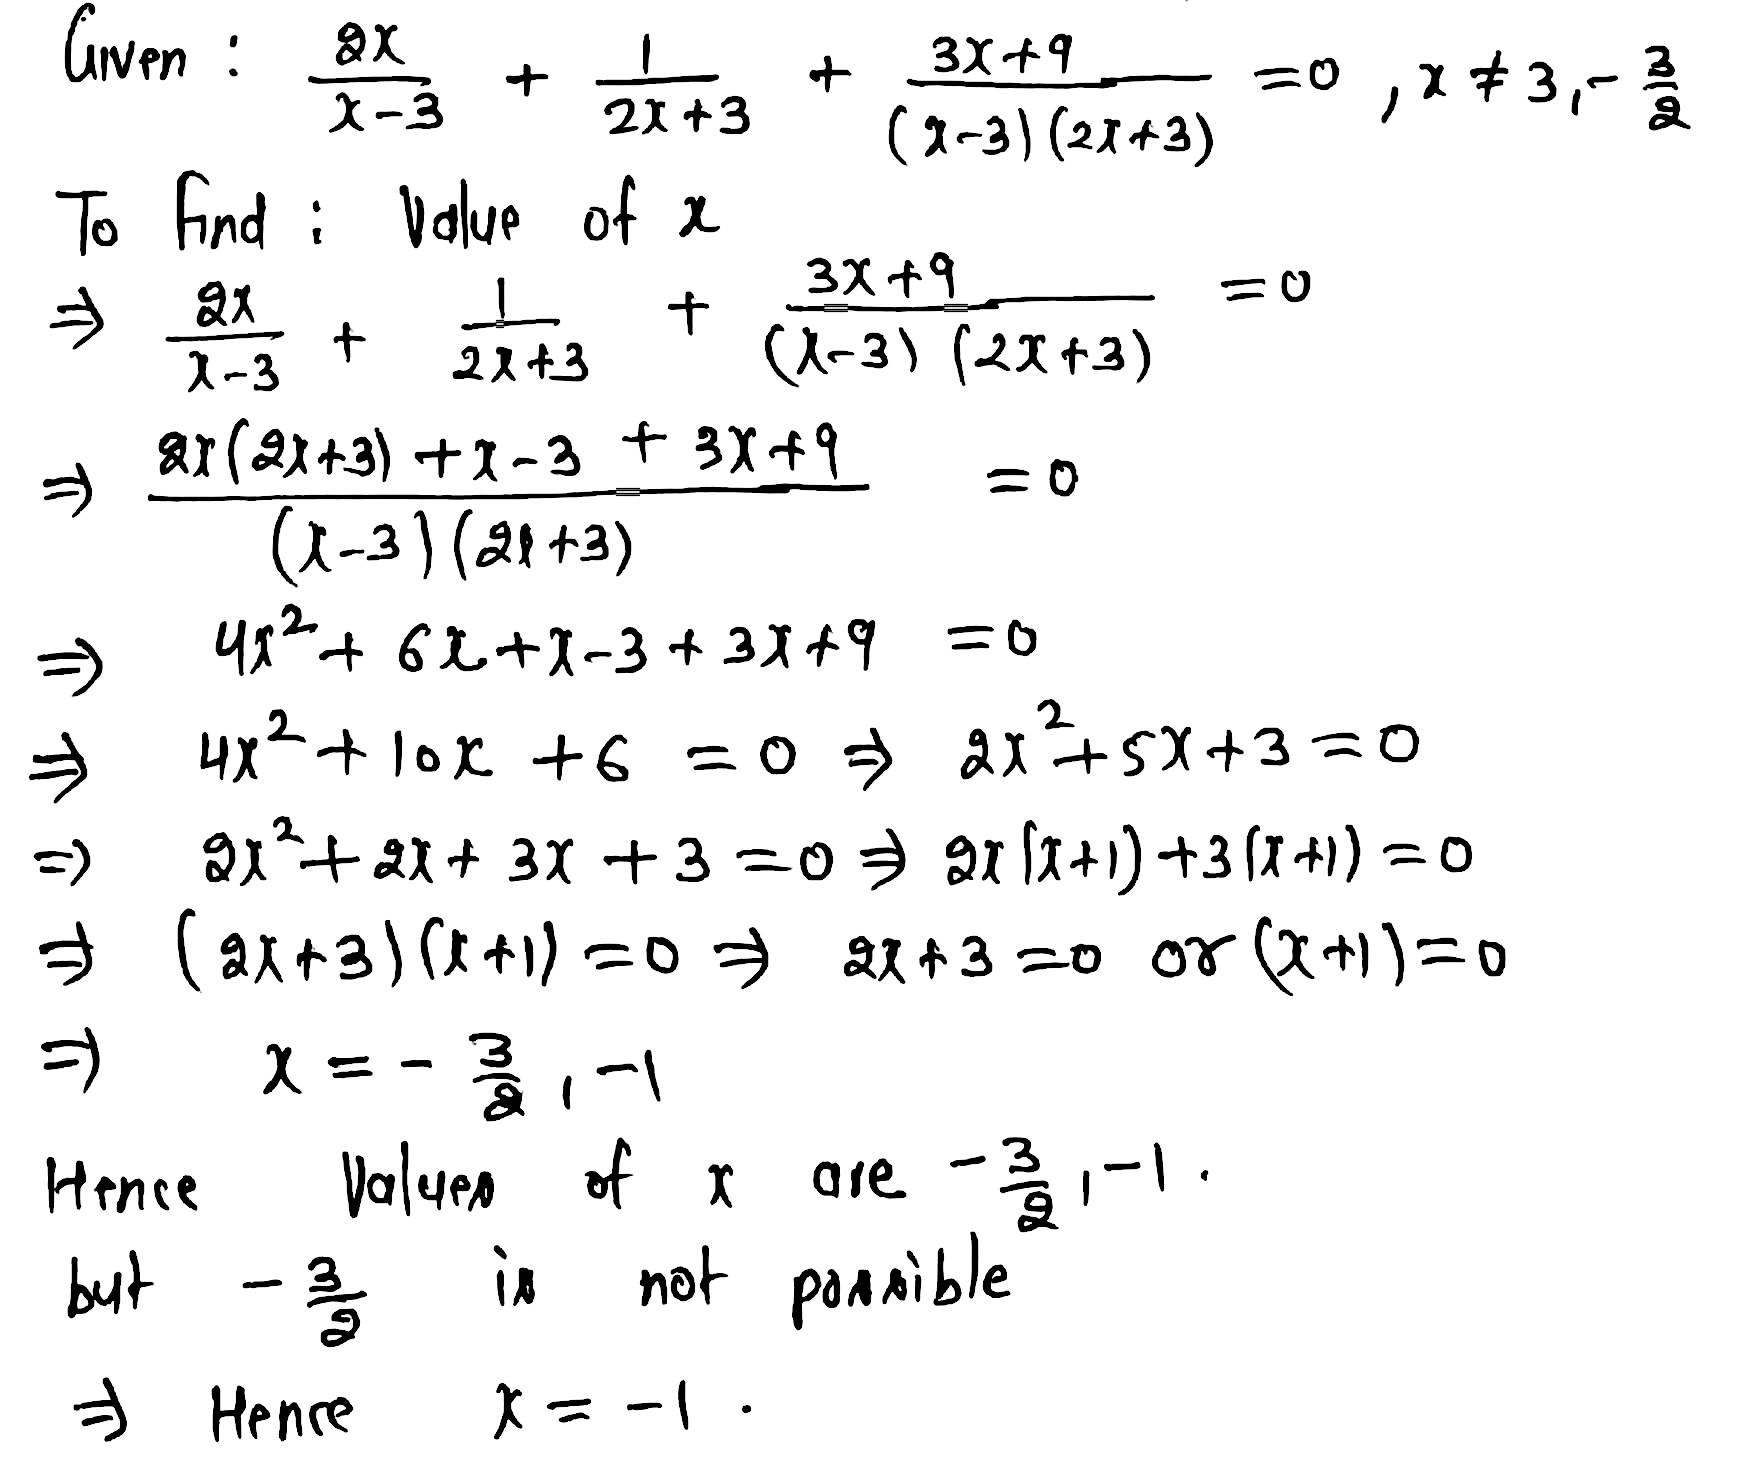 Given : 2x/(x-3) + 1/(2x+3) + (3x+9)/((x-3)(2x+3)) =0 , x ≠ 3, -3/2
To find : Value of x
⇒ 2x/(x-3) + 1/(2x+3) + (3x+9)/((x-3)(2x+3)) =0
⇒ (2x(2x+3) + x-3 + 3x+9)/((x-3)(2x+3)) =0
⇒ 4x² + 6x + x-3 + 3x+9 =0
⇒ 4x² + 10x + 6 = 0 ⇒ 2x² + 5x + 3 = 0
⇒ 2x² + 2x + 3x + 3 = 0 ⇒ 2x(x+1) + 3(x+1) = 0
⇒ (2x+3)(x+1) = 0 ⇒ 2x+3 = 0 or (x+1) = 0
⇒ x = -3/2, -1
Hence Values of x are -3/2, -1.
but -3/2 is not possible
⇒ Hence x = -1.